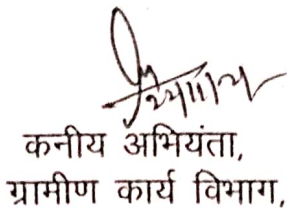 कनीय अभियंता,
ग्रामीण कार्य विभाग,